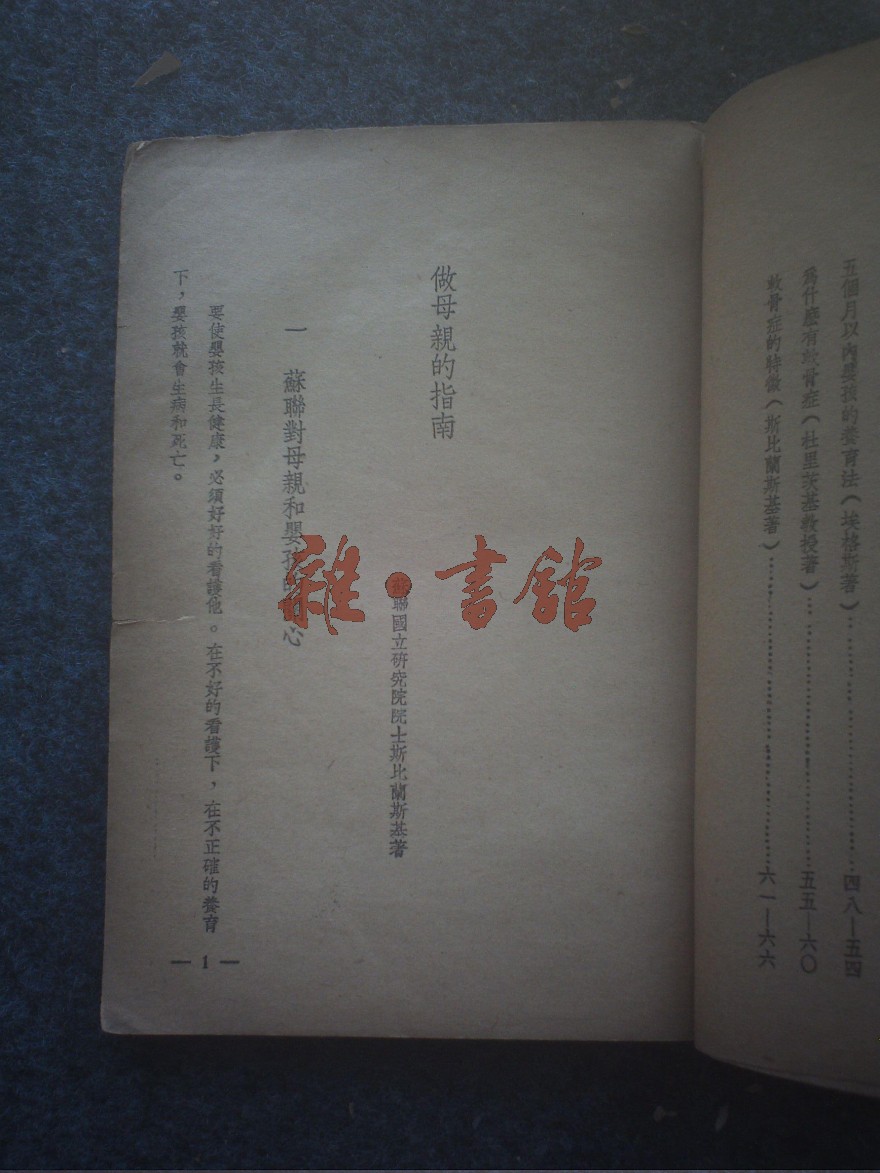 五個月以內嬰孩的養育法（埃格斯著）……四八—五四
爲什麼有軟骨症（杜里茨基教授著）……五五—六〇
軟骨症的特徵（斯比蘭斯基著）……六一—六六
做母親的指南
蘇聯國立研究院院士斯比蘭斯基著
一 蘇聯對母親和嬰孩的關心
要使嬰孩生長健康，必須好好的看護他。在不好的看護下，在不正確的養育
下，嬰孩就會生病和死亡。
— 1 —
雜·書館